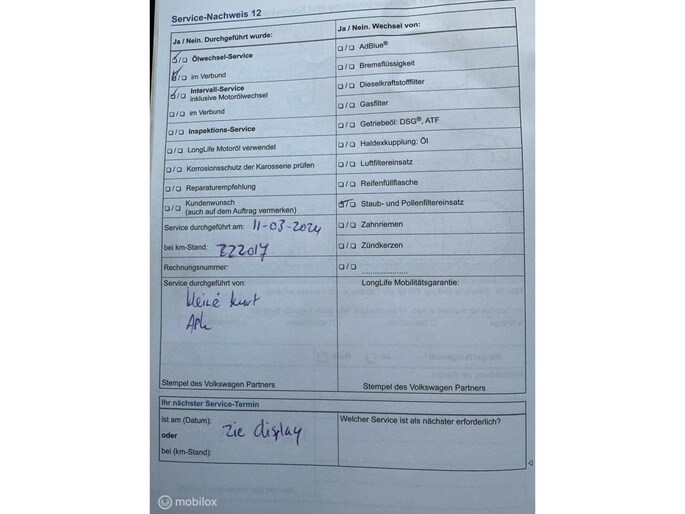 Service-Nachweis 12
Ja / Nein. Durchgeführt wurde:
Ölwechsel-Service
im Verbund
Intervall-Service
inklusive Motorölwechsel
im Verbund
Inspektions-Service
LongLife Motoröl verwendet
Korrosionsschutz der Karosserie prüfen
Reparaturempfehlung
Kundenwunsch
(auch auf dem Auftrag vermerken)
Service durchgeführt am: 11-03-2024
bei km-Stand: 222017
Rechnungsnummer:
Service durchgeführt von:
kleine
Stempel des Volkswagen Partners
Ja / Nein. Wechsel von:
AdBlue®
Bremsflüssigkeit
Dieselkraftstofffilter
Gasfilter
Getriebeöl: DSG®, ATF
Haldexkupplung: Öl
Luftfiltereinsatz
Reifenfüllflasche
Staub- und Pollenfiltereinsatz
Zahnriemen
Zündkerzen
LongLife Mobilitätsgarantie:
Stempel des Volkswagen Partners
Ihr nächster Service-Termin
ist am (Datum):
oder
zie display
bei (km-Stand):
Welcher Service ist als nächster erforderlich?
mobilox